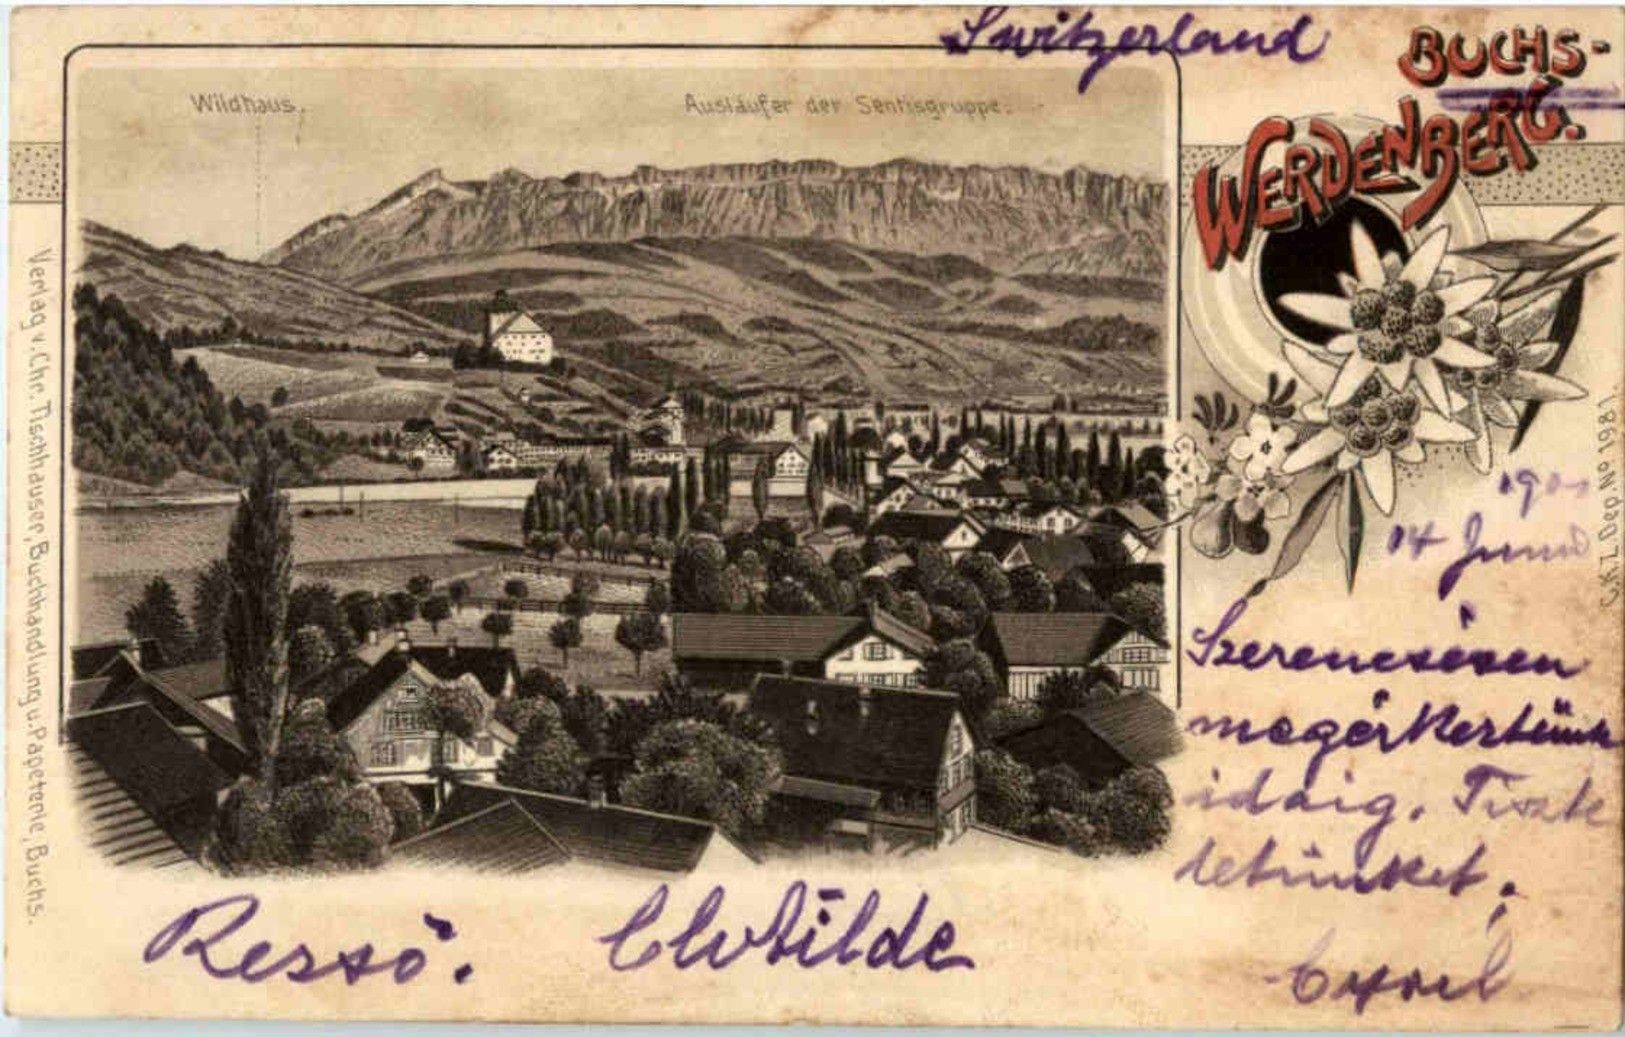 Switzerland
BUCHS-
WERDENBERG.
Wildhaus.
Ausläufer der Sentisgruppe.
Verlag v. Chr. Tischhauser, Buchhandlung u. Papeterie, Buchs.
C.K.Z. Dep. No 1981.
14 Juni
Szerencsésen
megérkeztünk
idáig. Tiszte
letünket.
Rezső. Clotilde